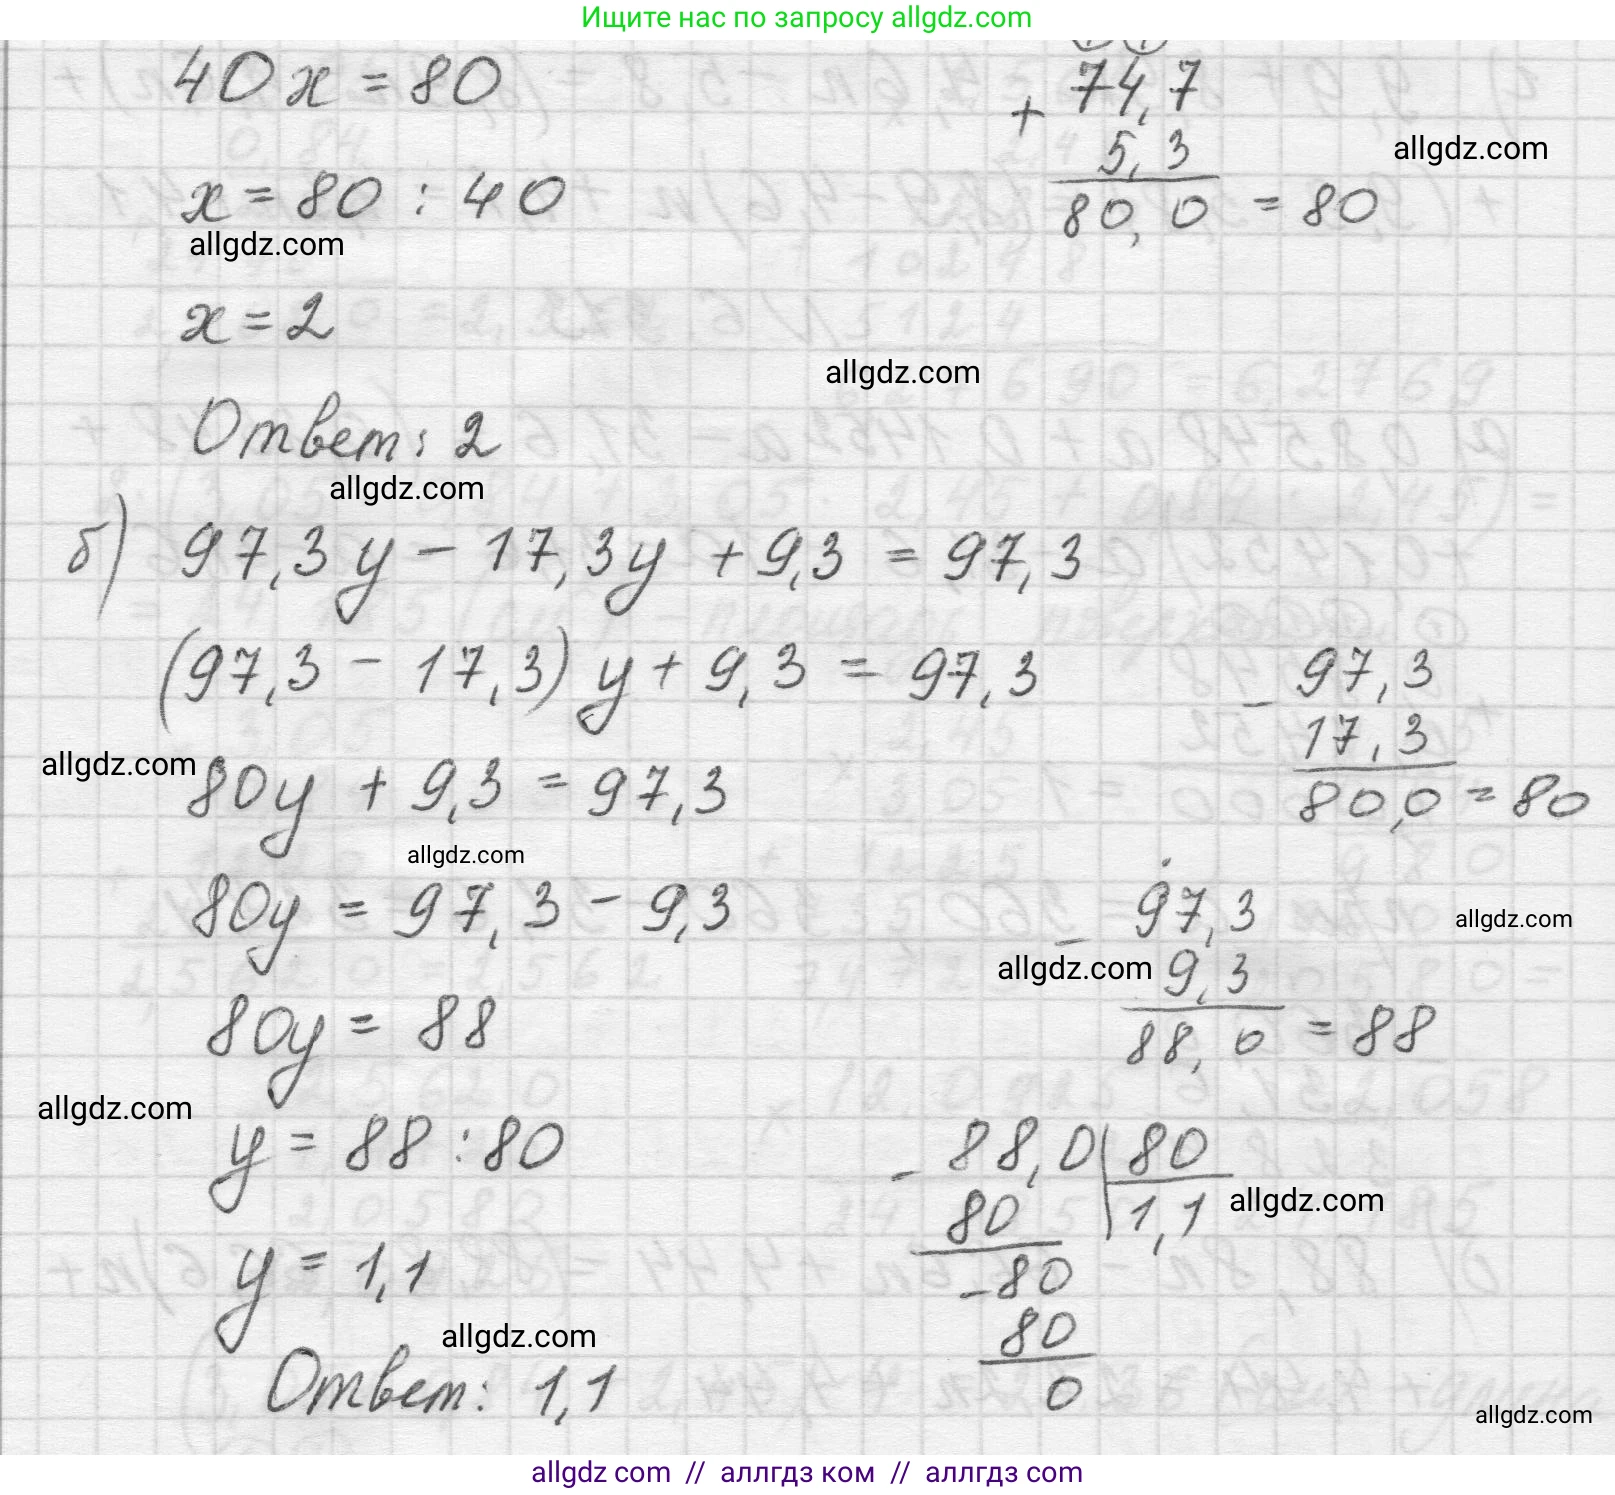 Ищите нас по запросу allgdz.com
40x = 80
74,7
+ 5,3
80,0 = 80
allgdz.com
x = 80 : 40
allgdz.com
x = 2
allgdz.com
Ответ: 2
allgdz.com
б) 97,3y - 17,3y + 9,3 = 97,3
(97,3 - 17,3) y + 9,3 = 97,3
- 97,3
17,3
80,0 = 80
allgdz.com
80y + 9,3 = 97,3
allgdz.com
80y = 97,3 - 9,3
- 97,3
9,3
88,0 = 88
allgdz.com
allgdz.com
80y = 88
allgdz.com
y = 88 : 80
- 88,0 | 80
80 | 1,1
- 80
80
0
allgdz.com
y = 1,1
allgdz.com
Ответ: 1,1
allgdz.com
allgdz com // аллгдз ком // аллгдз com